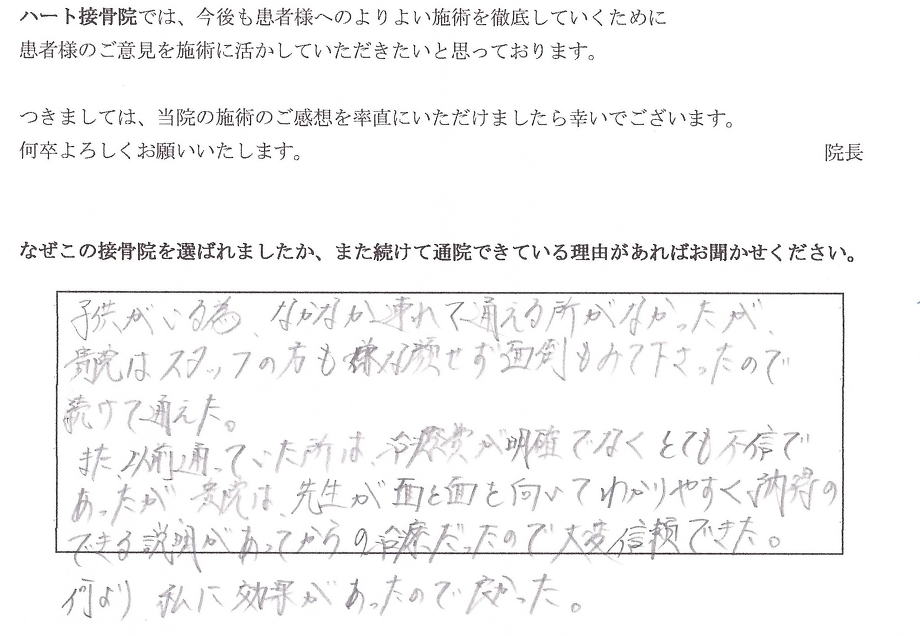 ハート接骨院では、今後も患者様へのよりよい施術を徹底していくために
患者様のご意見を施術に活かしていただきたいと思っております。
つきましては、当院の施術のご感想を率直にいただけましたら幸いでございます。
何卒よろしくお願いいたします。
院長
なぜこの接骨院を選ばれましたか、また続けて通院できている理由があればお聞かせください。
子供がいる為、なかなか連れて通える所がなかったが、
貴院はスタッフの方も嫌な顔せず面倒もみて下さったので
続けて通えた。
また、以前通っていた所は、治療費が明確でなくとても不信で
あったが貴院は、先生が面と面を向いてわかりやすく、納得の
できる説明があってからの治療だったので大変信頼できた。
何より私に効果があったので良かった。